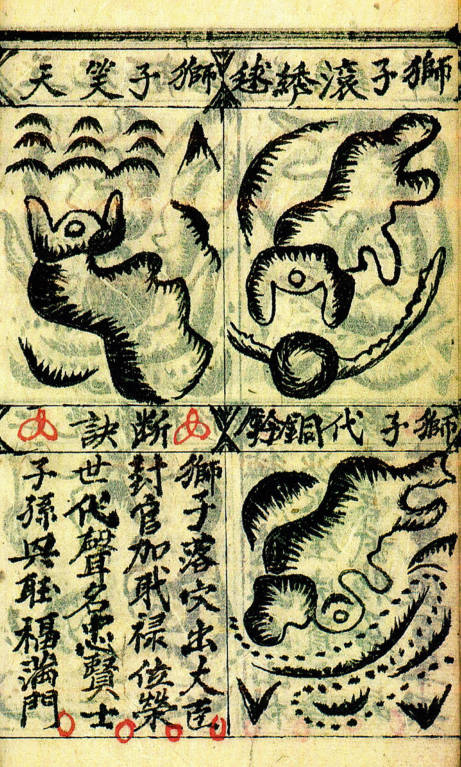 獅子滾綉毬
獅子笑天
獅子代銅鈴
断訣
獅子落穴出大臣
封官加耺禄位榮
世代聲名忠賢士
子孫興旺福滿門